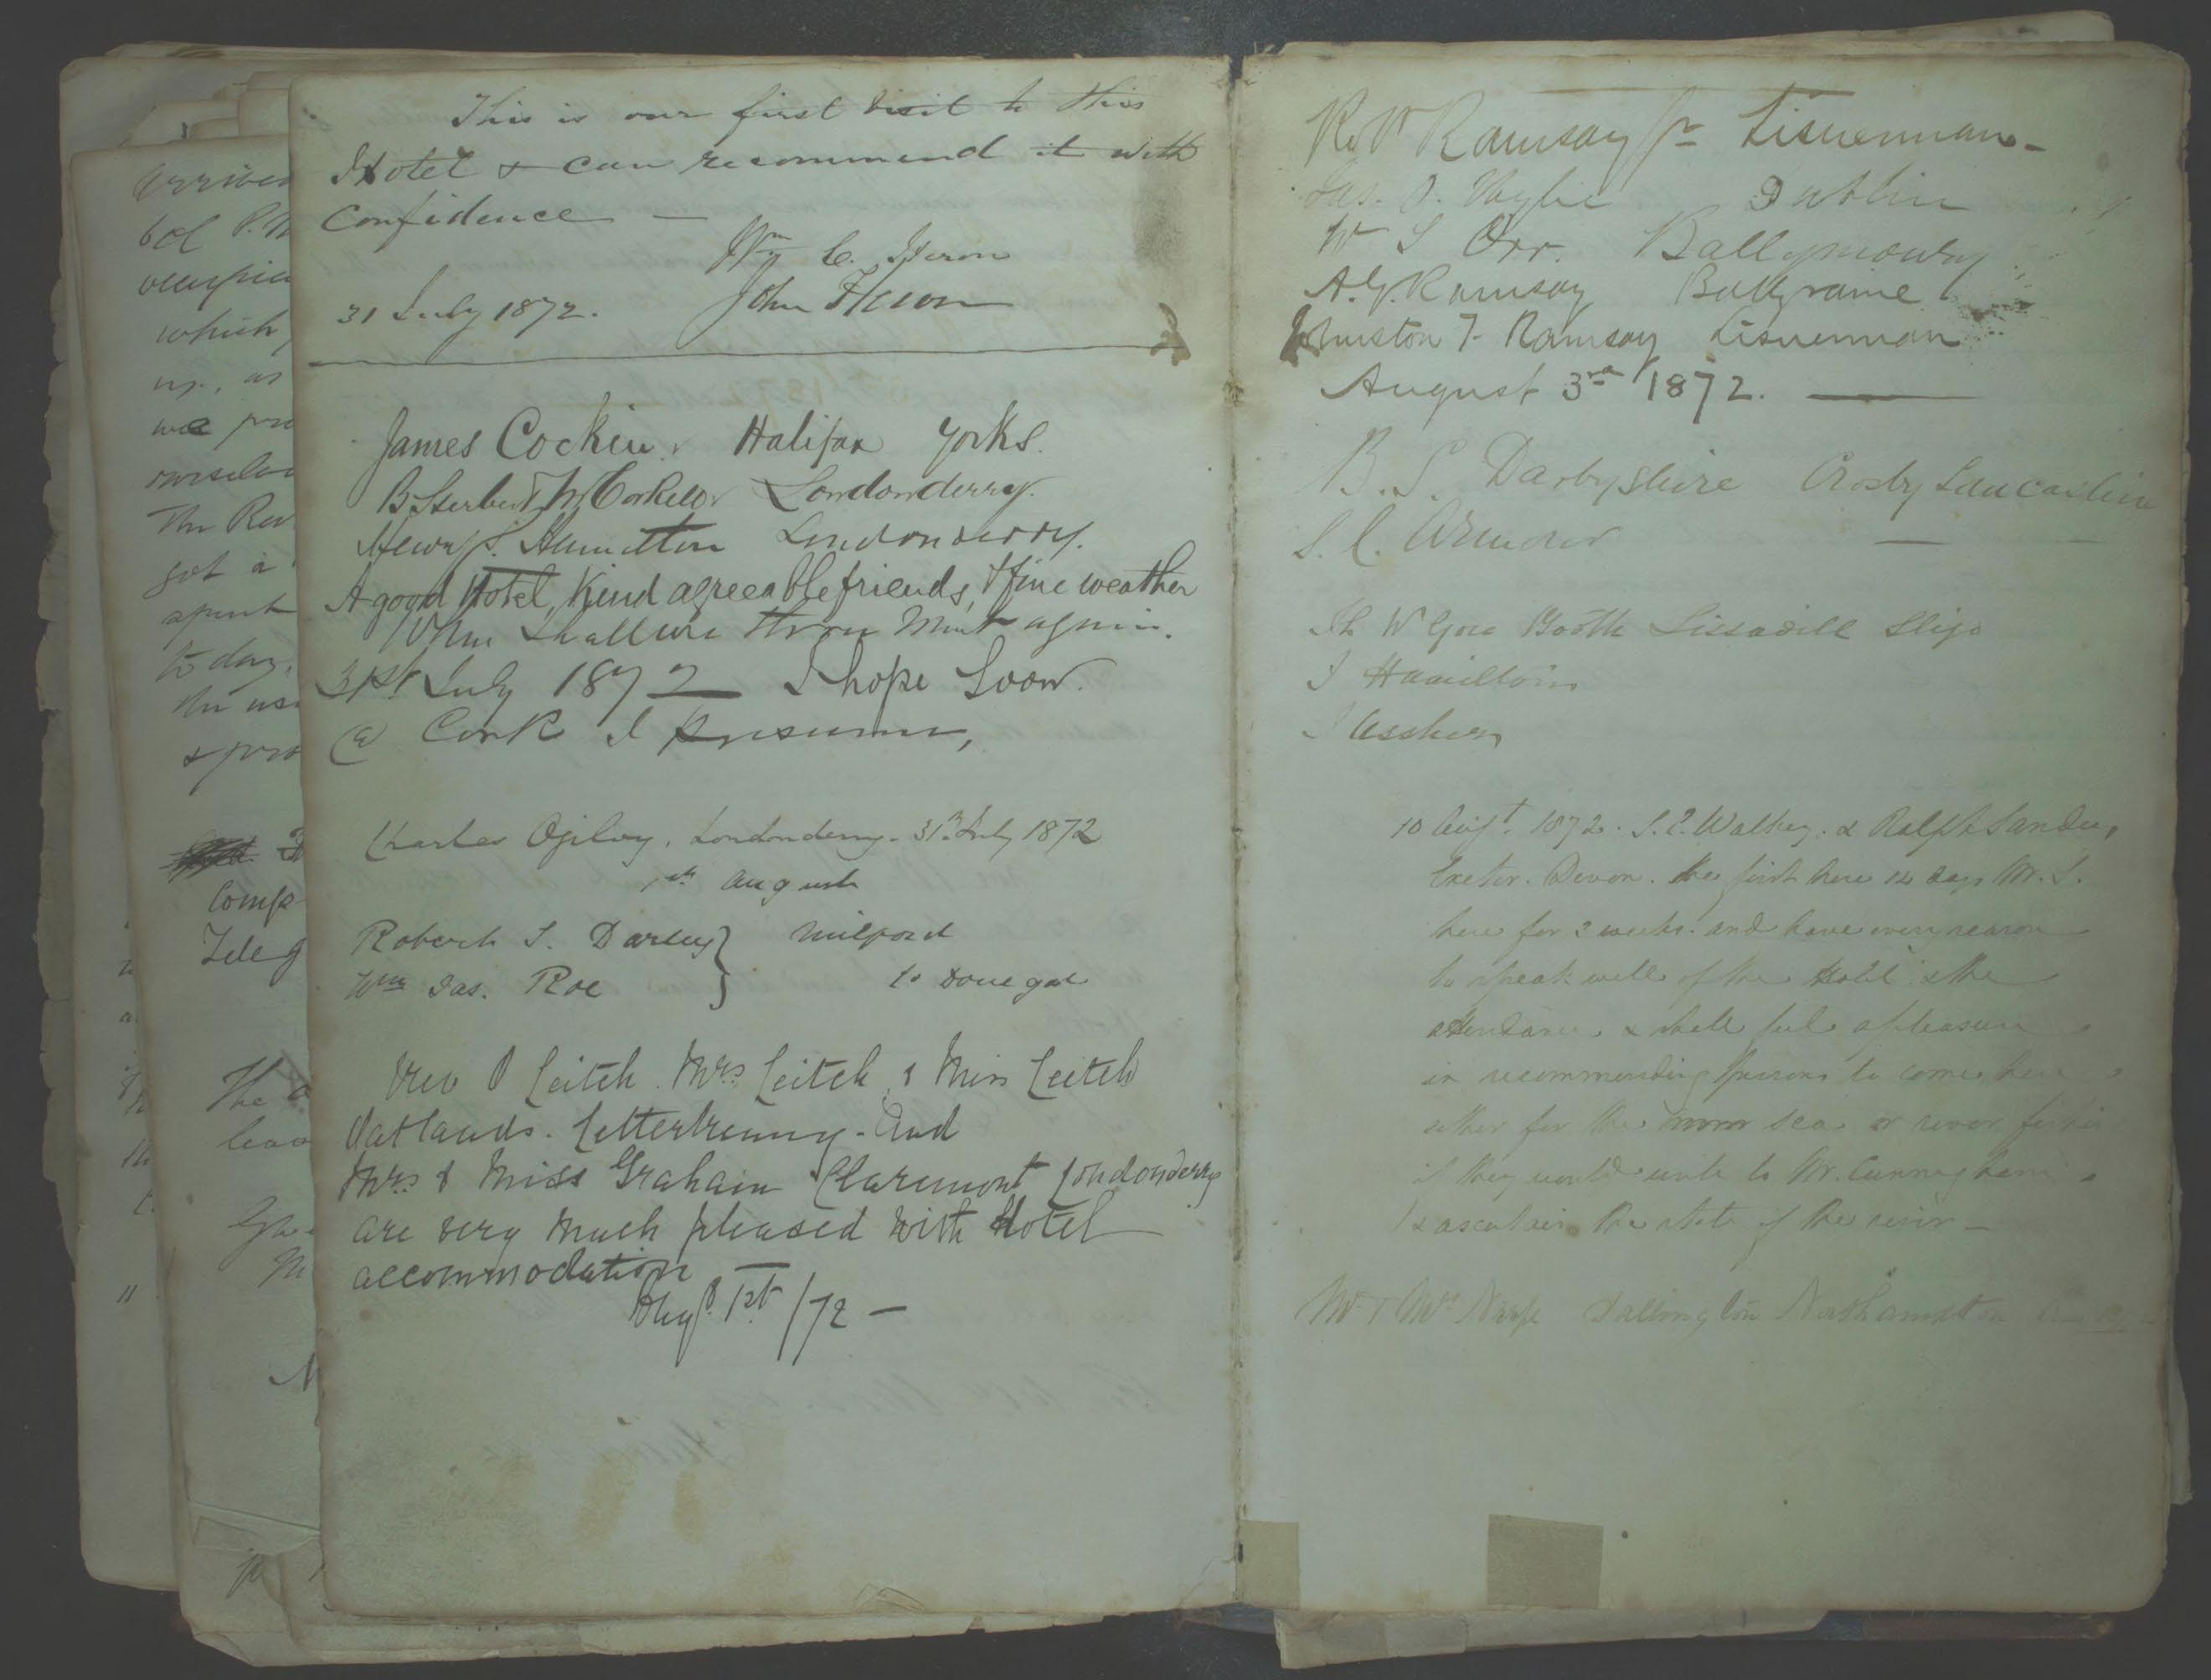 This is our first visit to this
Hotel & can recommend it with
Confidence —
Wm C. Heron
31 July 1872. John Heron
James Cockin Halifax Yorks.
B Herbert McCorkell Londonderry.
Henry S. Hamilton Londonderry.
A good Hotel, Kind agreeable friends, & fine weather
When shall we three meet again.
31st July 1872 I hope Soon.
@ Cork I presume,
Charles Ogilvy, Londonderry. 31st July 1872
1st August
Robert S. Darley } Milford
Wm Jas. Roe } Co Donegal
Rev Leitch Mrs Leitch & Miss Leitch
Oatlands. Letterkenny. And
Mrs & Miss Graham Claremont Londonderry
are very much pleased with Hotel
accommodation
Augt 1st /72 —
arrived
which
up, as
The Rev
got a
spent
to day,
Comp
Teleg
The
Ramsay Jr Lisnennan -
Jas. Wylie Dublin
W S Orr. Ballymoney
A.G. Ramsay Ballyraine
Johnston F. Ramsay Lisnennan
August 3rd 1872. —
B. S. Darbyshire Crosby Lancashire
S. C. — —
W Gore Booth Lissadill Sligo
Hamilton
10 Augt. 1872. S. P. Walkey. & Ralph Sanders,
Exeter. Devon. the first here 10 days Mr. S.
here for 3 weeks. and have every reason
to speak well of the Hotel & the
attendance & shall feel a pleasure
in recommending persons to come here
either for the sea or river fishing
if they would write to Mr. Cunningham
& ascertain the state of the river —
Mr & Mrs Dallington Northampton